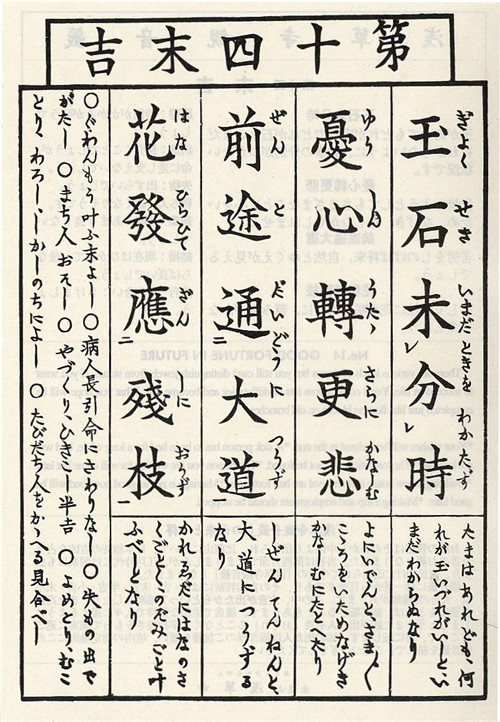 第十四末吉
ぎよく せき いまだときを わかたず
玉石未レ分レ時
たまはあれども、何
れが玉いづれがいしとい
まだわからぬなり
ゆう しん たゝ さらに かなしむ
憂心轉更悲
よにいでんと、さま〲
こゝろをいためなげき
かなしむにたとへたり
ぜん だいどうに つうず
前途通二大道一
しぜんてんねんと、
大道につうずる
なり
はな ひらひて ざん しに おうず
花發應二殘枝一
かれゑだにはなのさ
くごとくのぞみごと叶
ふべしとなり
〇ぐわんもう叶ふ末よし 〇病人長引命にさわりなし 〇失もの出で
がたし 〇まち人おそし 〇やづくりひきこし半吉 〇よめとり、むこ
とり、わろし、しかしのちによし 〇たびだち人をかゝへる見合べし